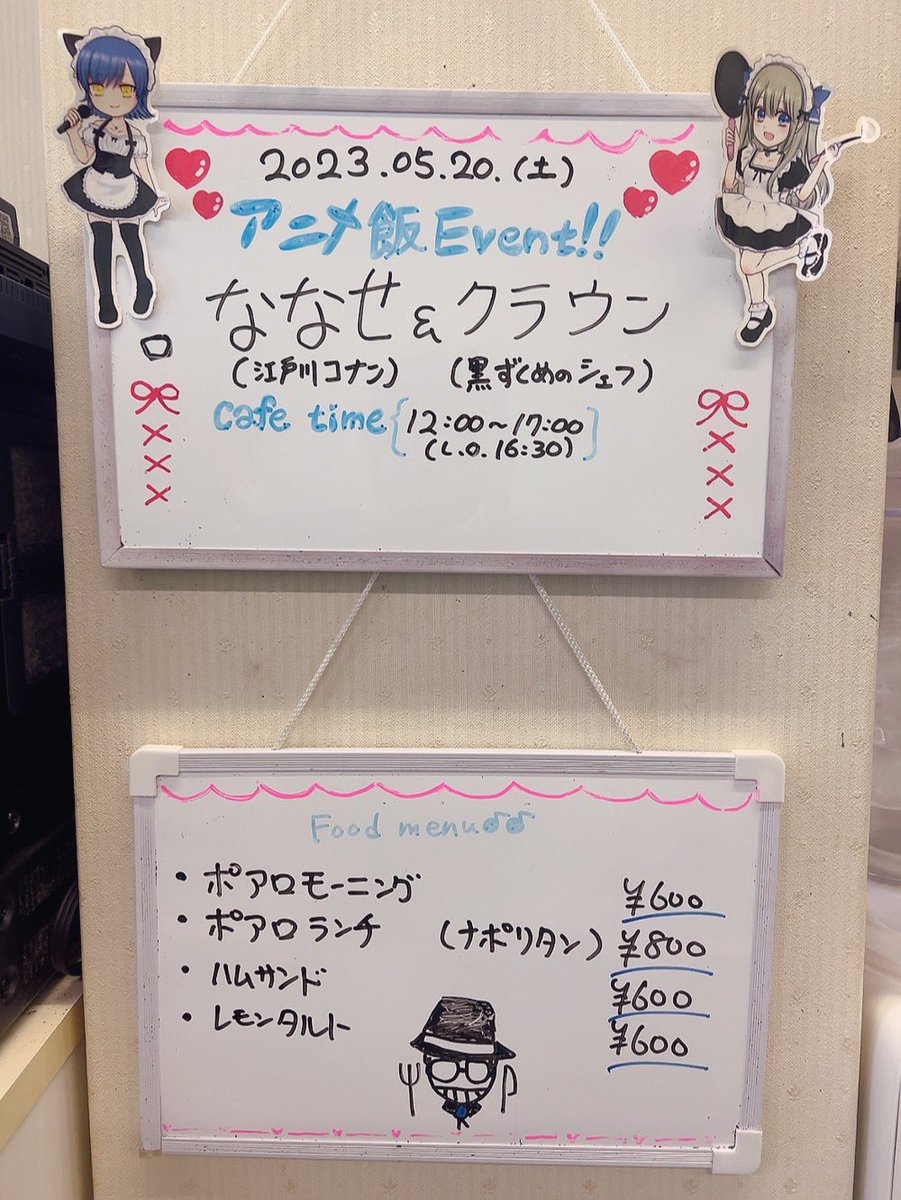 2023.05.20.(土)
アニメ飯Event!!
ななせ&クラウン
(江戸川コナン) (黒ずくめのシェフ)
Cafe time{12:00~17:00
(L.O.16:30)}
Food menu
・ポアロモーニング ¥600
・ポアロランチ (ナポリタン) ¥800
・ハムサンド ¥600
・レモンタルト ¥600